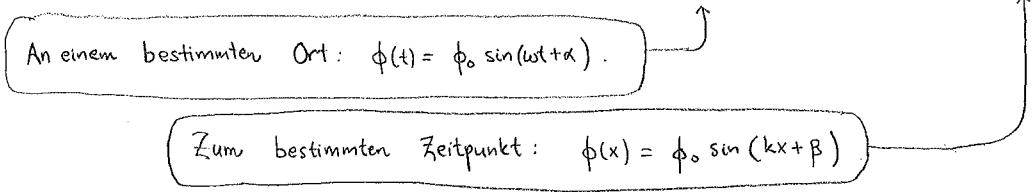 An einem bestimmten Ort: ϕ(t) = ϕ₀ sin(ωt+α).
Zum bestimmten Zeitpunkt: ϕ(x) = ϕ₀ sin(kx+β)